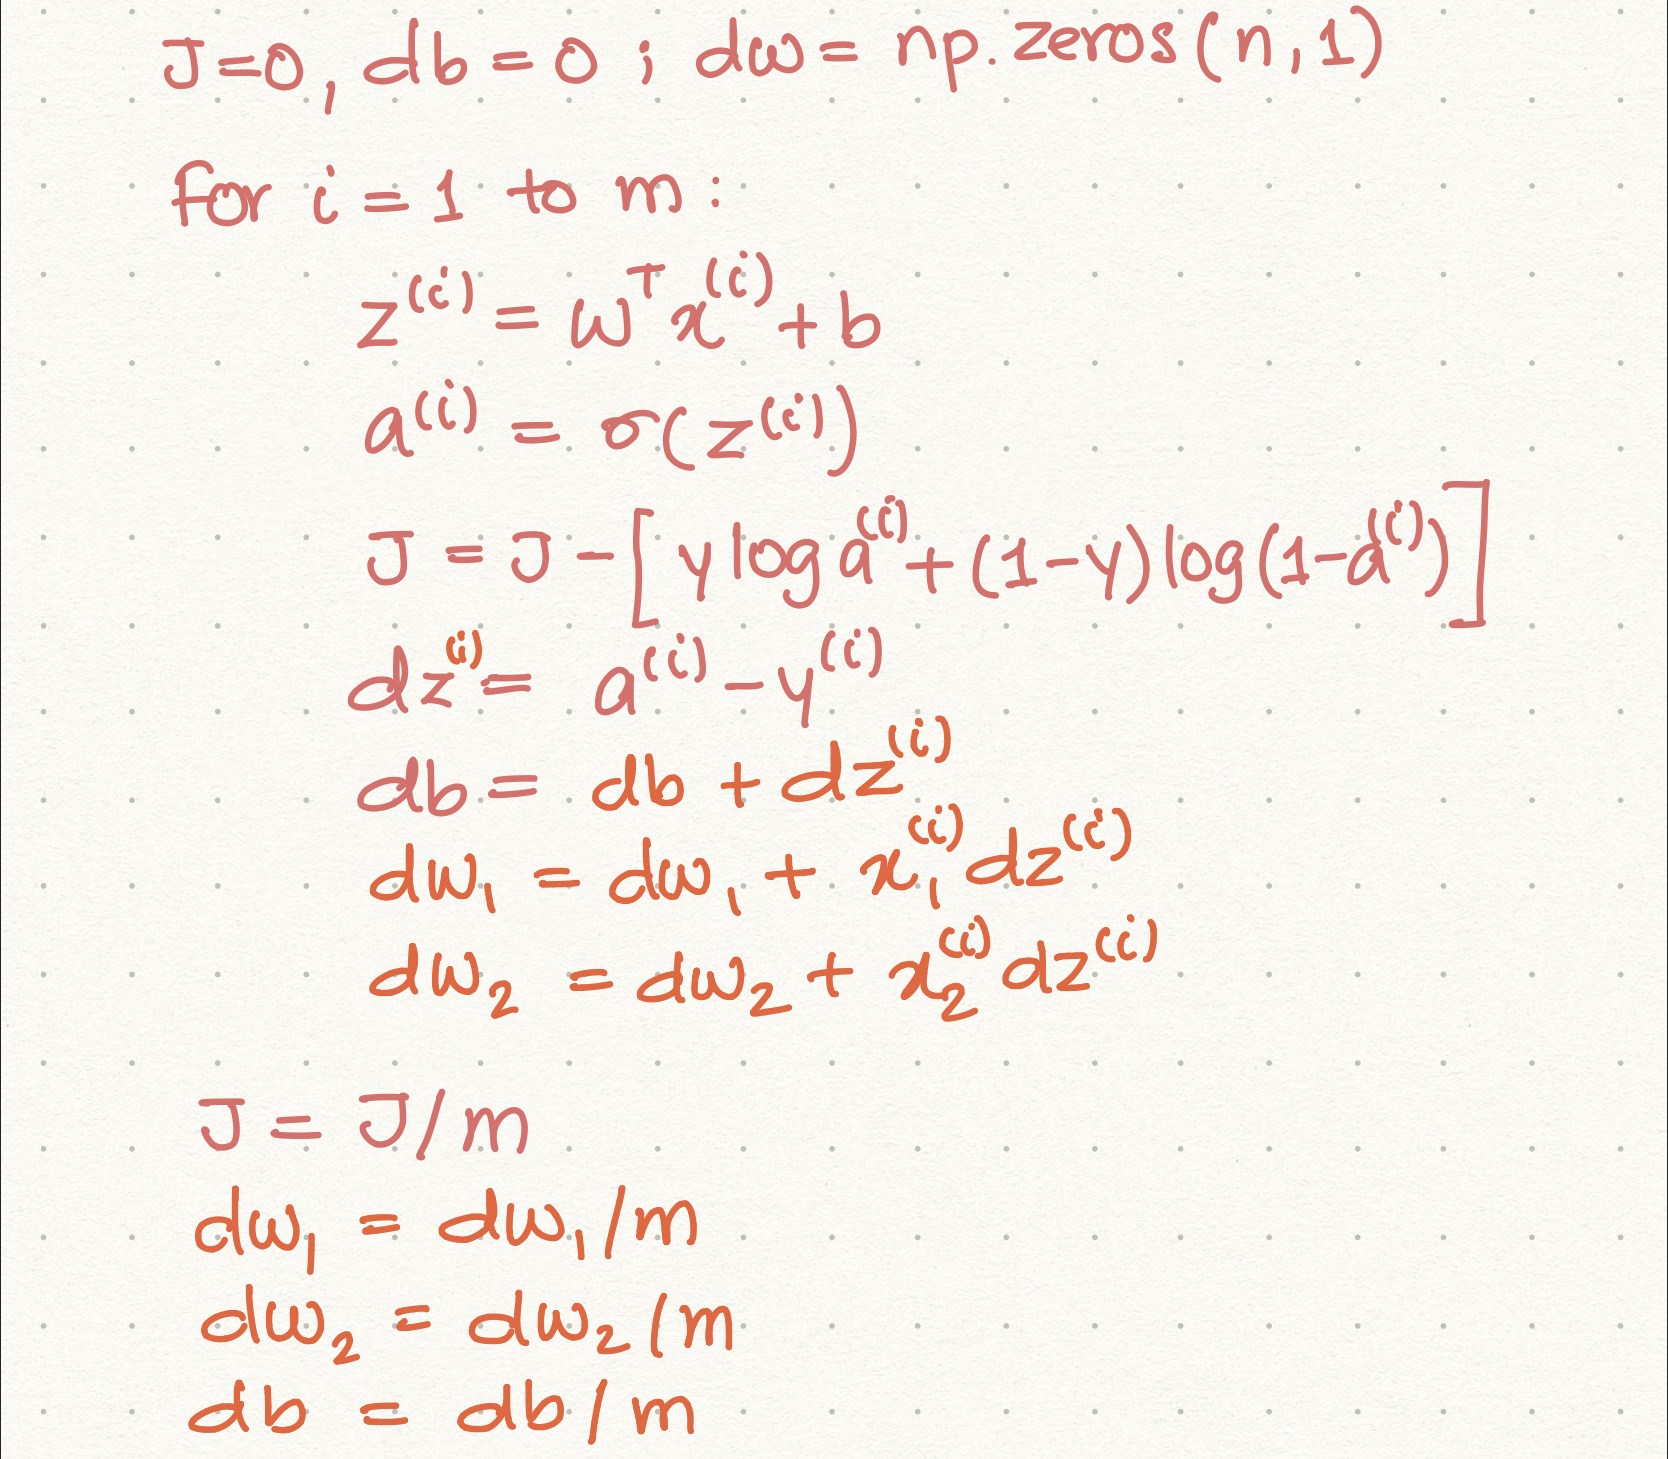 J=0, db=0 ; dw= np.zeros(n,1)
for i=1 to m:
z⁽ⁱ⁾ = wᵀx⁽ⁱ⁾+b
a⁽ⁱ⁾ = σ(z⁽ⁱ⁾)
J = J-[y log a⁽ⁱ⁾+(1-y)log(1-a⁽ⁱ⁾)]
dz⁽ⁱ⁾= a⁽ⁱ⁾-y⁽ⁱ⁾
db= db + dz⁽ⁱ⁾
dw₁ = dw₁ + x₁⁽ⁱ⁾dz⁽ⁱ⁾
dw₂ = dw₂ + x₂⁽ⁱ⁾dz⁽ⁱ⁾
J = J/m
dw₁ = dw₁/m
dw₂ = dw₂/m
db = db/m